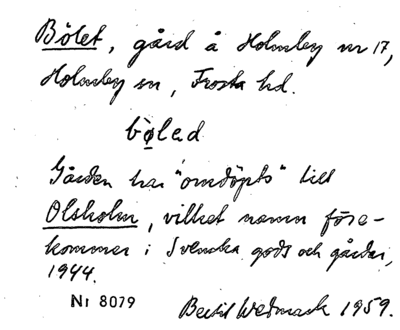 Bölet, gård å Holmby nr 17,
Holmby sn, Frosta hd.
bøled
Gården har "omdöpts" till
Olsholm, vilket namn före-
kommer i Svenska gods och gårdar,
1944.
Nr 8079
Bertil Wedmark 1959.